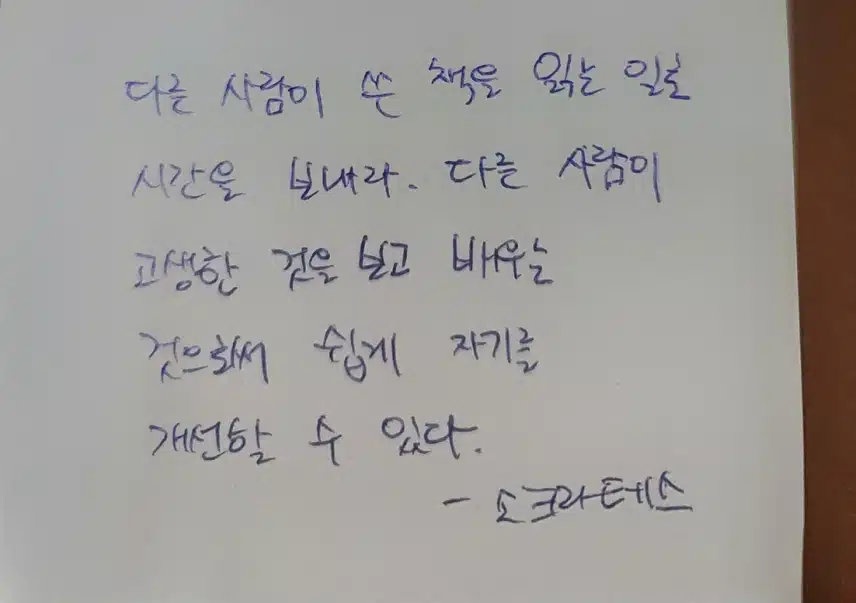 다른 사람이 쓴 책을 읽는 일로
시간을 보내라. 다른 사람이
고생한 것을 보고 배우는
것으화서 쉽게 자기를
개선할 수 있다.
- 소크라테스